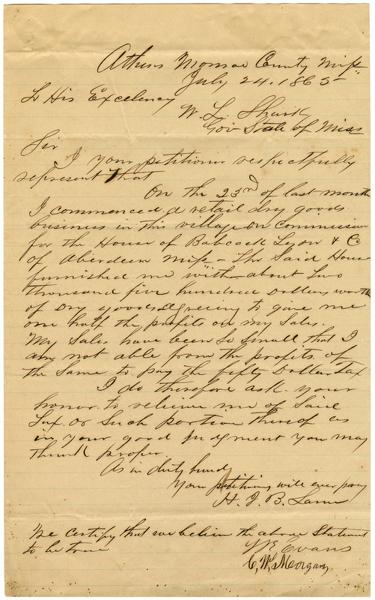 Athens Monroe County Miss
July 24. 1865
To His Excelency
W. L. Shark
Gov State of Miss
Sir
I your petitioner respectfully
represent that
On the 23rd of last month
I commenced a retail dry goods
business in this village on commission
for the House of Babcock Lyon & Co
of Aberdeen Miss - The Said House
furnished me with about two
thousand five hundred dollars worth
of dry goods agreeing to give me
one half the profits on my Sales.
My Sales have been so Small that I
am not able from the profits of
the Same to pay the fifty Dollar tax
I do therefore ask your
honor to relieve me of Said
Tax or Such portion thereof as
in your good Judgment you may
think proper.
As in duty bound
Your petitioner will ever pray
H. J. B. Lann
We certify that we believe the above Statement
to be true
Evans
C. W. Morgan